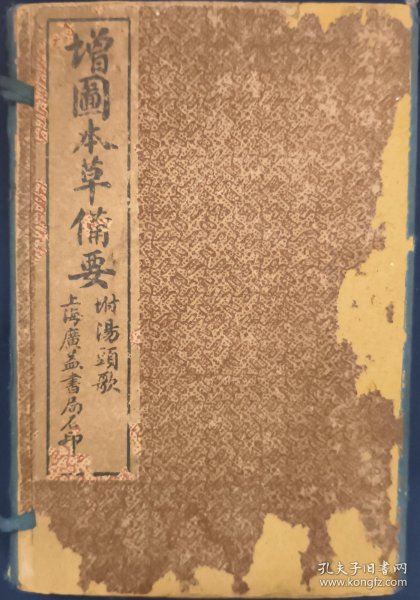 增圖本草備要
附湯頭歌
上海廣益書局石印
孔夫子旧书网
www.kongfz.com